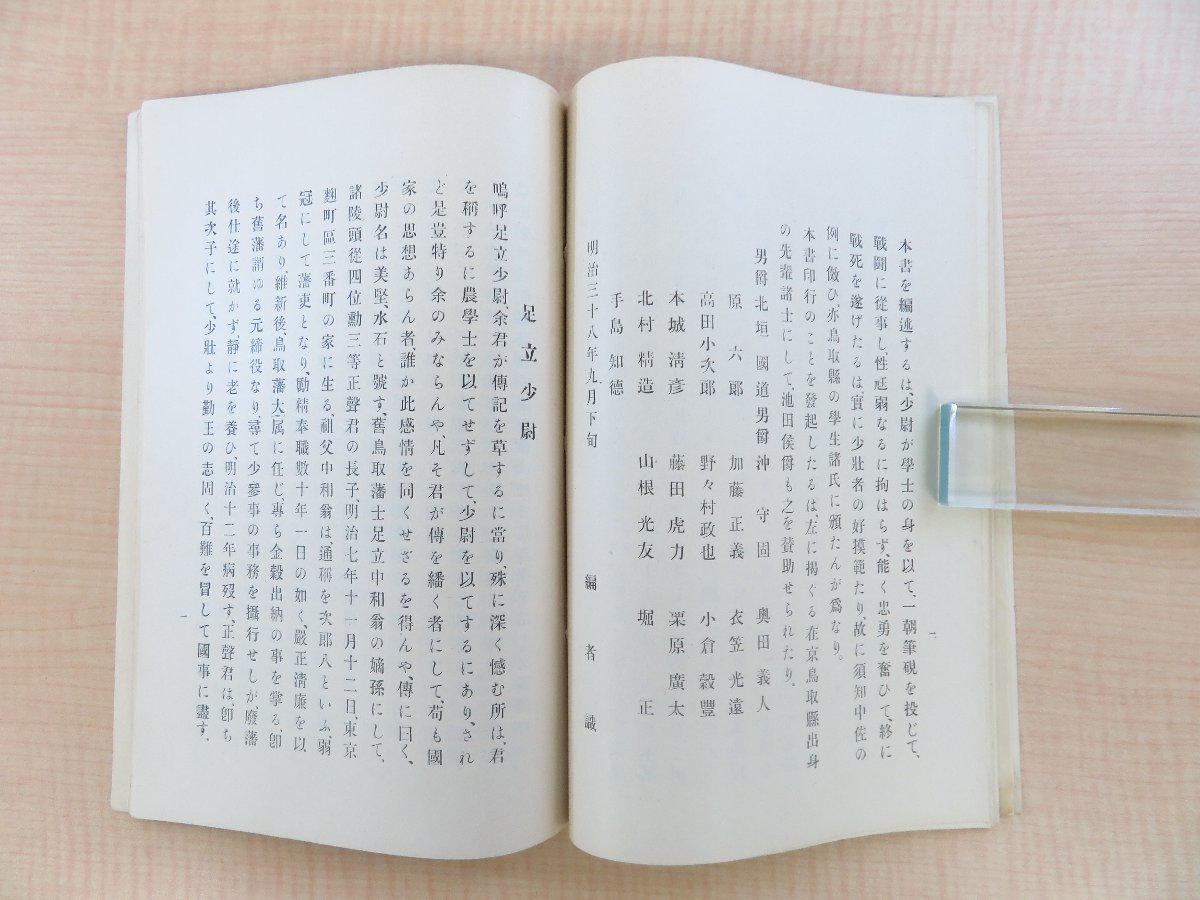 本書を編述するは、少尉が學士の身を以て、一朝筆硯を投じて、
戰鬪に從事し、性尩弱なるに拘はらず、能く忠勇を奮ひて、終に
戰死を遂げたるは、實に少壯者の好摸範たり、故に須知中佐の
例に倣ひ、亦鳥取縣の學生諸氏に頒たんが爲なり。
本書印行のことを發起したるは、左に揭ぐる在京鳥取縣出身
の先輩諸士にして、池田侯爵も之を贊助せられたり。
男爵 北垣國道 男爵 沖守固 奧田義人
原六郎 加藤正義 衣笠光遠
高田小次郎 野々村政也 小倉穀豐
本城淸彥 藤田虎力 栗原廣太
北村精造 山根光友 堀正
手島知德
明治三十八年九月下旬 編者識
一
足立少尉
嗚呼足立少尉、余君が傳記を草するに當り、殊に深く憾む所は、君
を稱するに農學士を以てせずして、少尉を以てするにあり、され
ど是豈特り余のみならんや、凡そ君が傳を繙く者にして、苟も國
家の思想あらん者、誰か此感情を同くせざるを得んや、傳に曰く、
少尉名は美堅、水石と號す、舊鳥取藩士足立中和翁の嫡孫にして、
諸陵頭從四位勳三等正聲君の長子、明治七年十一月十二日、東京
麴町區三番町の家に生る、祖父中和翁は、通稱を次郎八といふ弱
冠にして藩吏となり、勵精奉職數十年一日の如く、嚴正淸廉を以
て名あり、維新後、鳥取藩大屬に任じ、專ら金穀出納の事を掌る、卽
ち舊藩謂ゆる元締役なり尋て少參事の事務を攝行せしが、廢藩
後仕途に就かず、靜に老を養ひ、明治十二年病歿す、正聲君は、卽ち
其次子にして、少壯より勤王の志固く、百難を冒して國事に盡す、
一